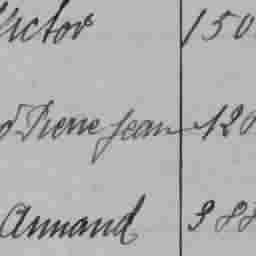 Victor 150
d Pierre Jean 120
Armand 388